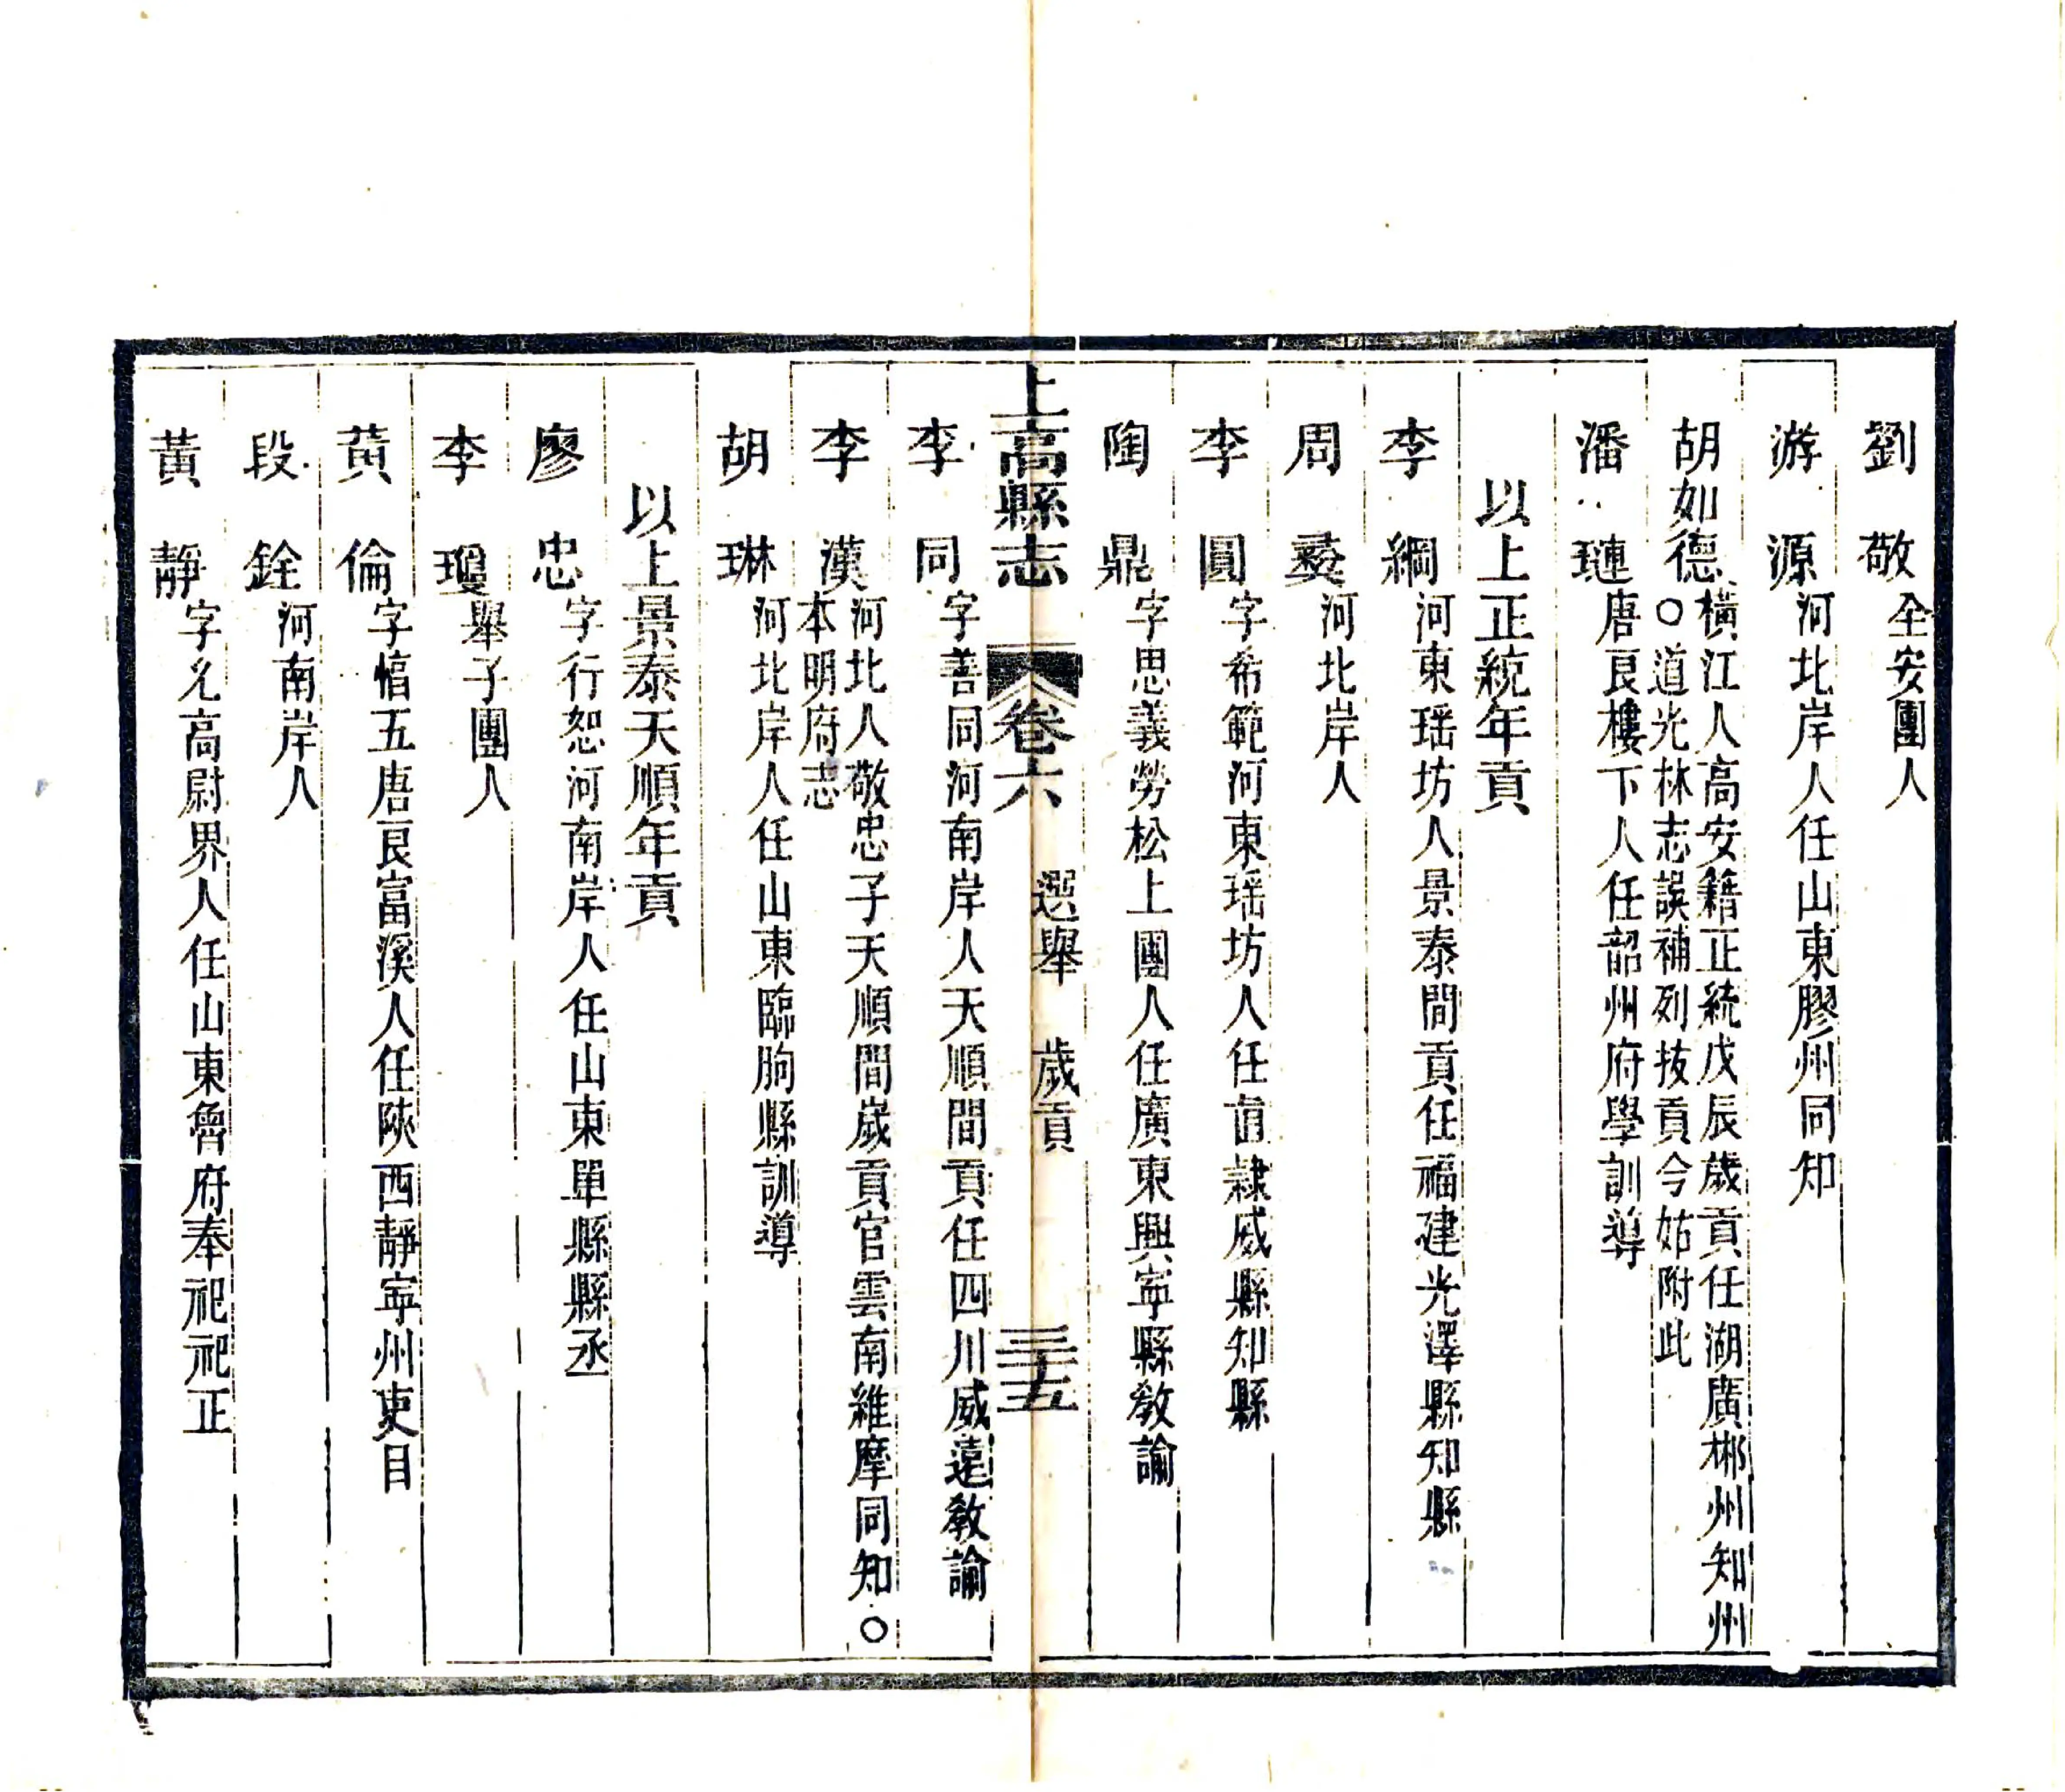 劉敬全安團人
游源河北岸人任山東膠州同知
胡如德橫江人高安籍正統戊辰歲貢任湖廣郴州知州
○道光林志誤補列拔貢今姑附此
潘璉唐良樓下人任韶州府學訓導
以上正統年貢
李綱河東瑶坊人景泰間貢任福建光澤縣知縣
周㷼河北岸人
李圓字希範河東瑶坊人任直隷威縣知縣
陶鼎字思義勞松上團人任廣東興寧縣敎諭
上高縣志 卷六 選舉 歲貢 三十五
李同字善同河南岸人天順間貢任四川威遠敎諭
李漢河北人敬忠子天順間歲貢官雲南維摩同知○
本明府志
胡琳河北岸人任山東臨朐縣訓導
以上景泰天順年貢
廖忠字行恕河南岸人任山東單縣縣丞
李瓊舉子團人
黃倫字愊五唐良富溪人任陝西靜寧州吏目
段銓河南岸人
黃靜字允高尉界人任山東魯府奉祀祀正